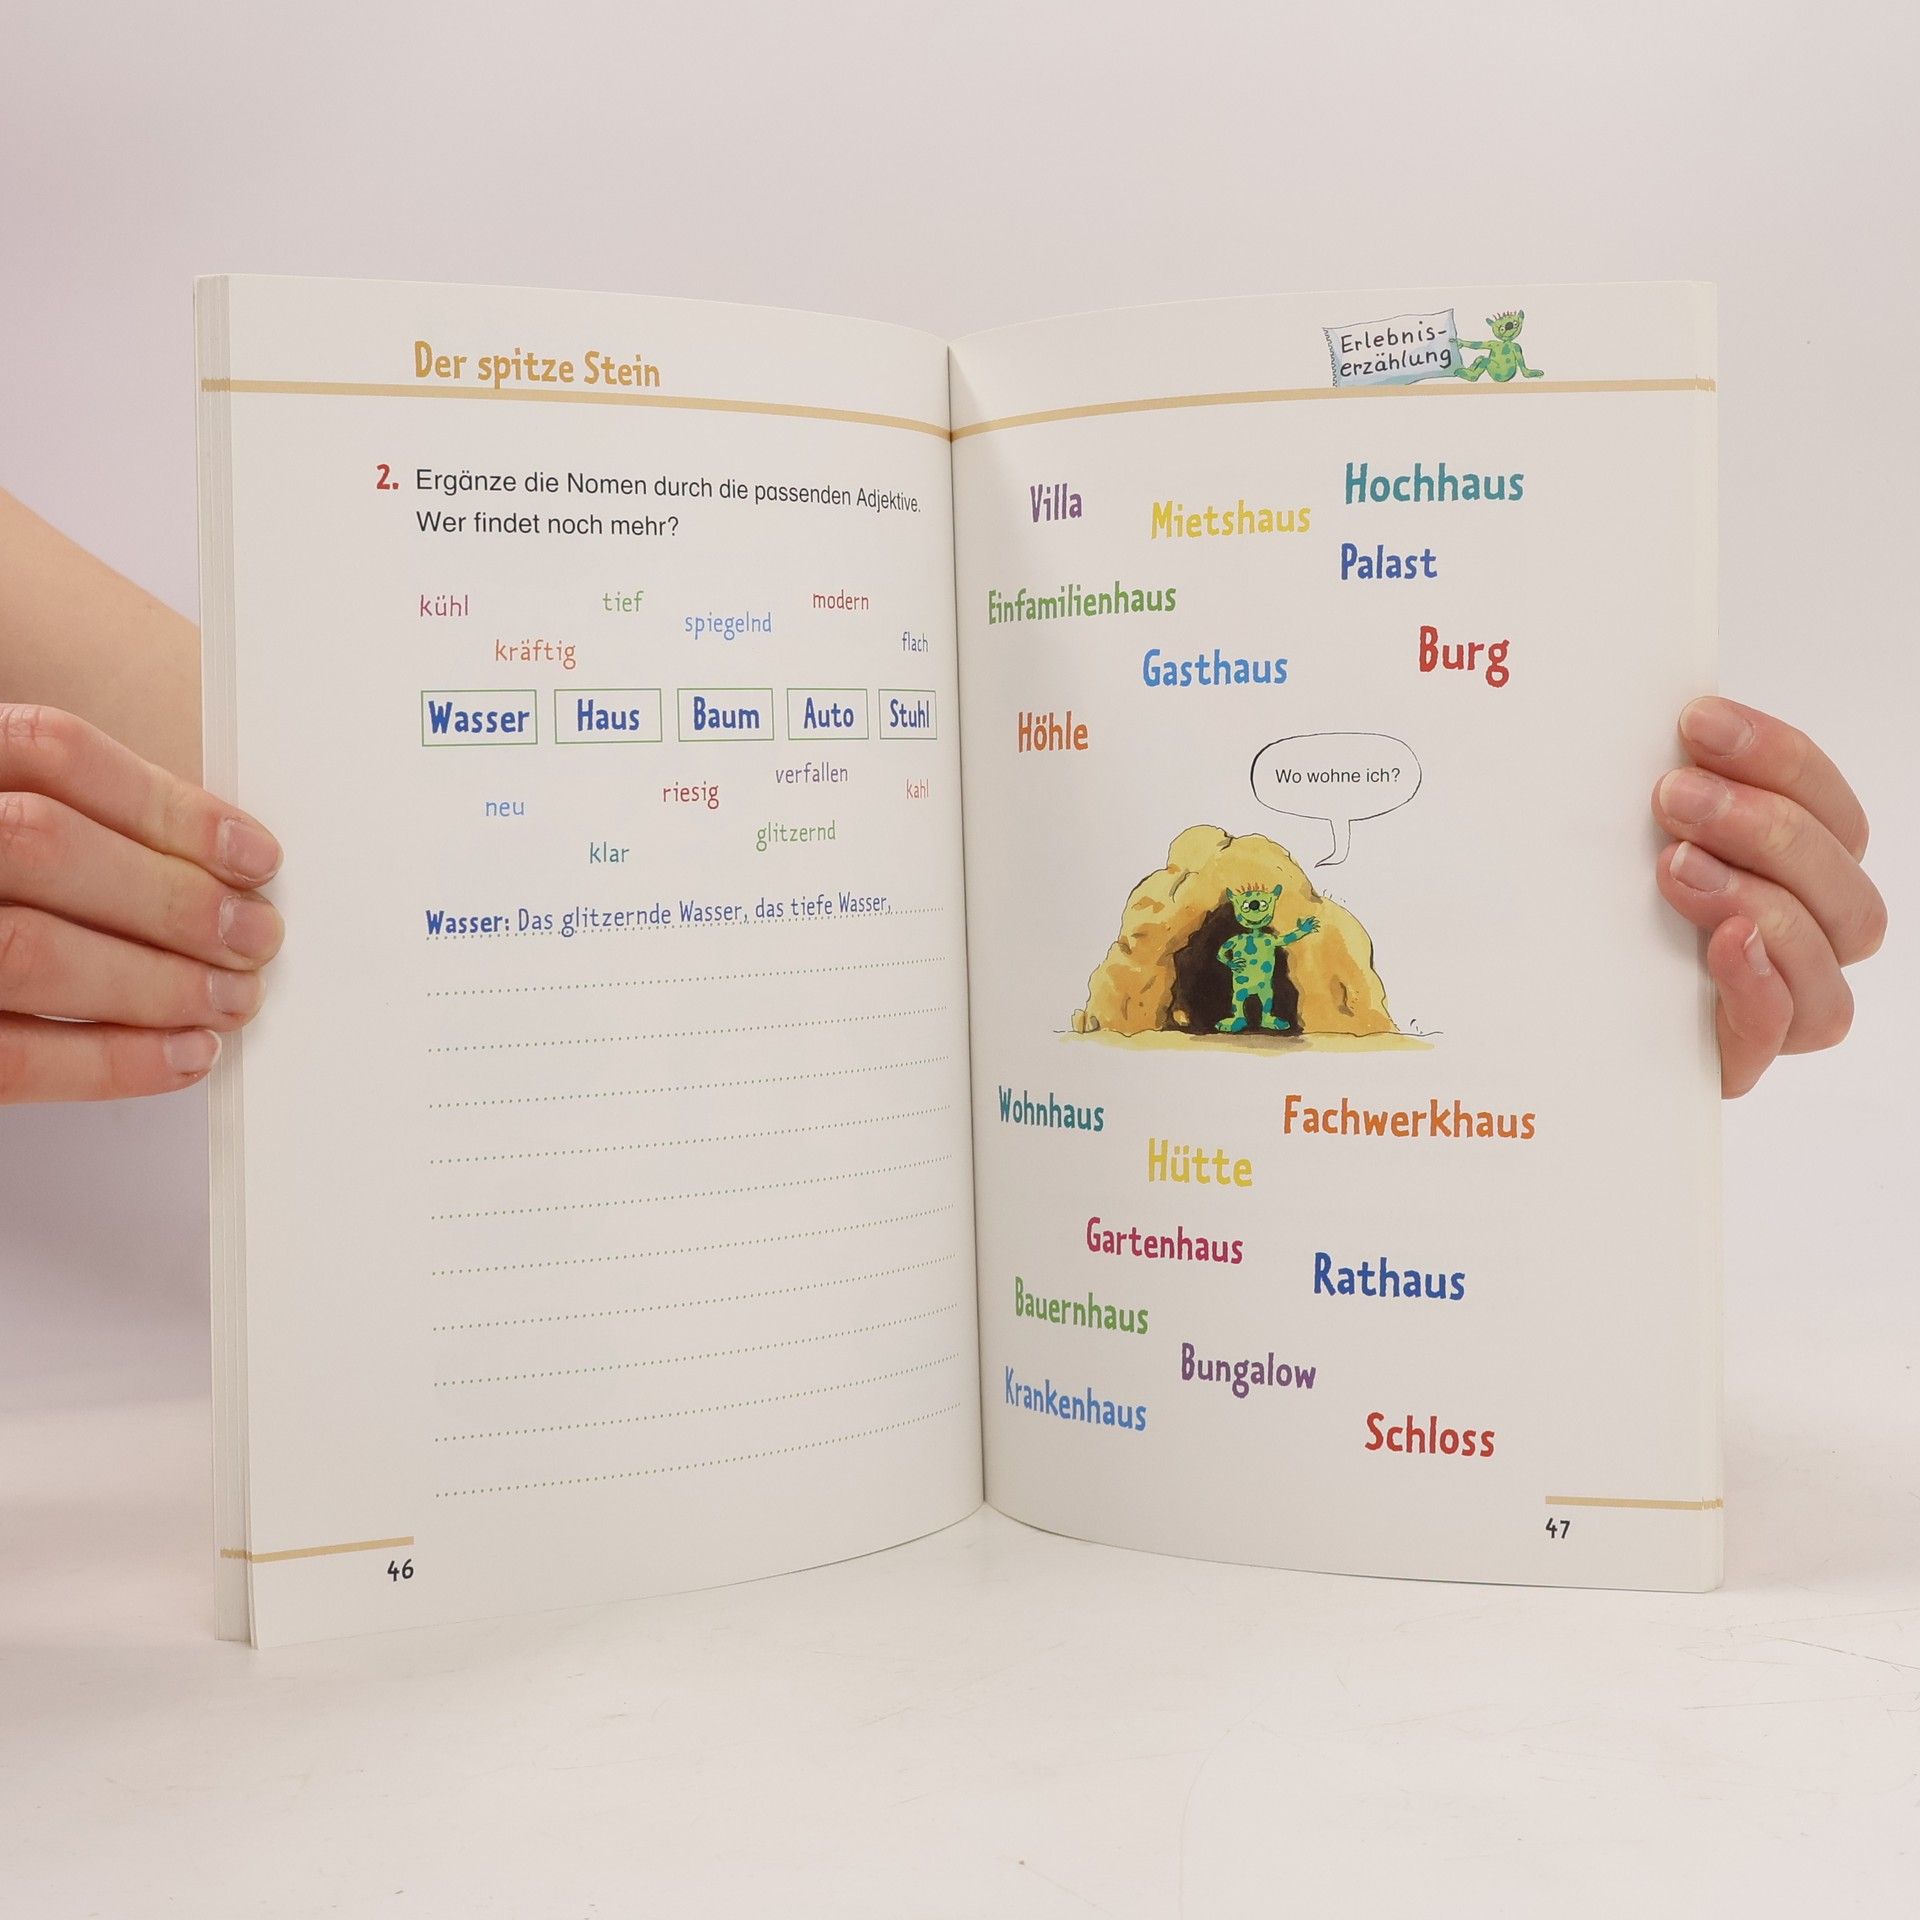 Der spitze Stein
2. Ergänze die Nomen durch die passenden Adjektive.
Wer findet noch mehr?
kühl tief modern
spiegelnd
kräftig flach
Wasser Haus Baum Auto Stuhl
verfallen
neu riesig kahl
klar glitzernd
Wasser: Das glitzernde Wasser, das tiefe Wasser,
46
Erlebnis-
erzählung
Villa Mietshaus Hochhaus
Palast
Einfamilienhaus
Gasthaus Burg
Höhle
Wo wohne ich?
Wohnhaus Fachwerkhaus
Hütte
Gartenhaus
Rathaus
Bauernhaus
Bungalow
Krankenhaus
Schloss
47